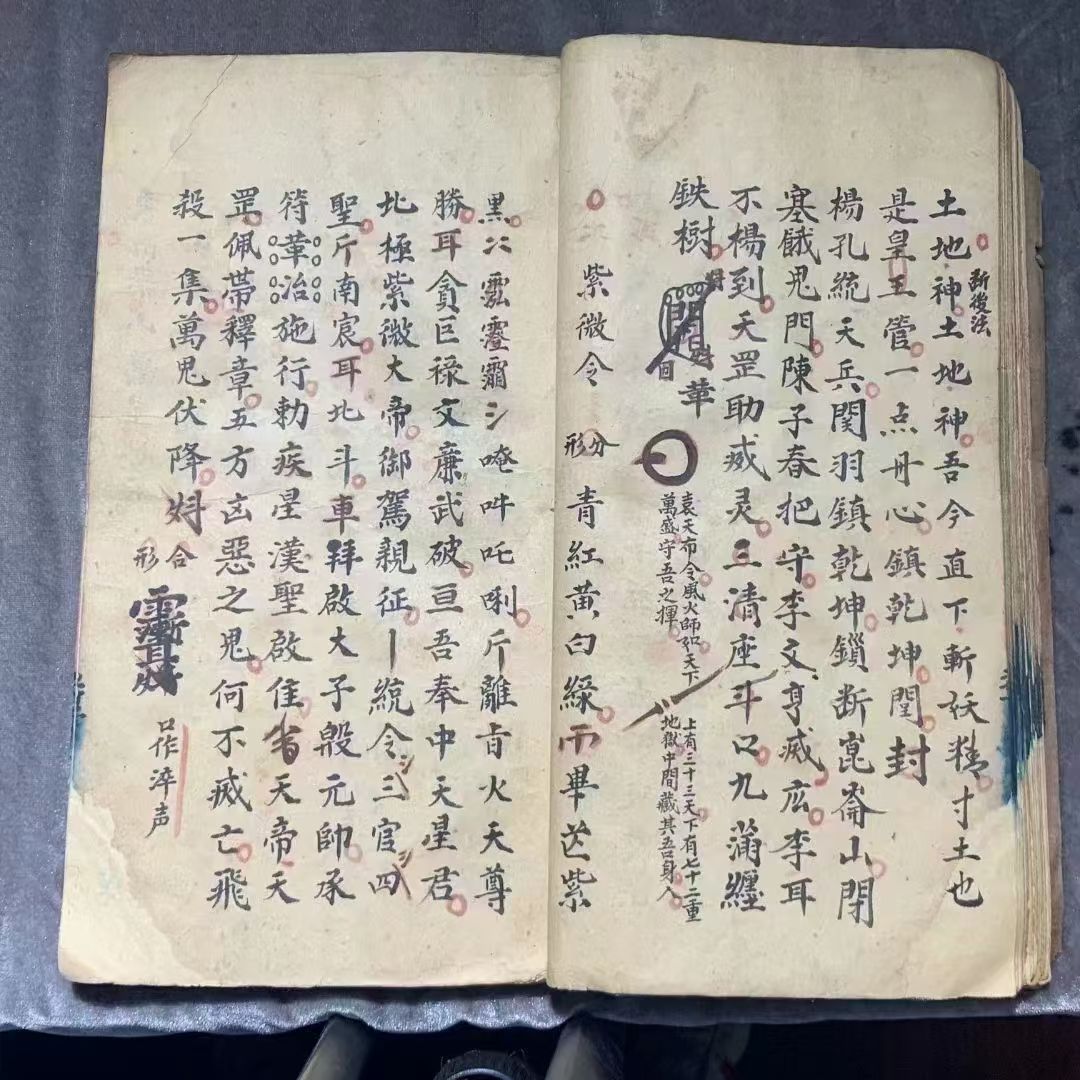 土地神土地神吾今直下斬妖精寸土也
斬後法
是皇王管一点丹心鎮乾坤閏封
楊孔統天兵関羽鎮乾坤鎖断崑崙山閉
塞餓鬼門陳子春把守李文亨威広李耳
不楊到天罡助威灵三清座斗口九蒲纏
鉄樹
華
袁天布令風火師和天下
萬盛守吾之揮
上有三十三天下有七十二重
地獄中間藏其吾身人
紫微令
分形
青紅黄白緑而畢芒紫
黒
唵吽吒唎斤離盲火天尊
勝耳貪巨禄文亷武破亘吾奉中天星君
北極紫微大帝御駕親征統令三官四
聖斤南宸耳北斗車拜啟大子殷元帥承
符華冶施行勅疾星漢聖啟隹天帝天
罡佩帯釋章五方凶惡之鬼何不威亡飛
殺一集萬鬼伏降
合形
口作淬声